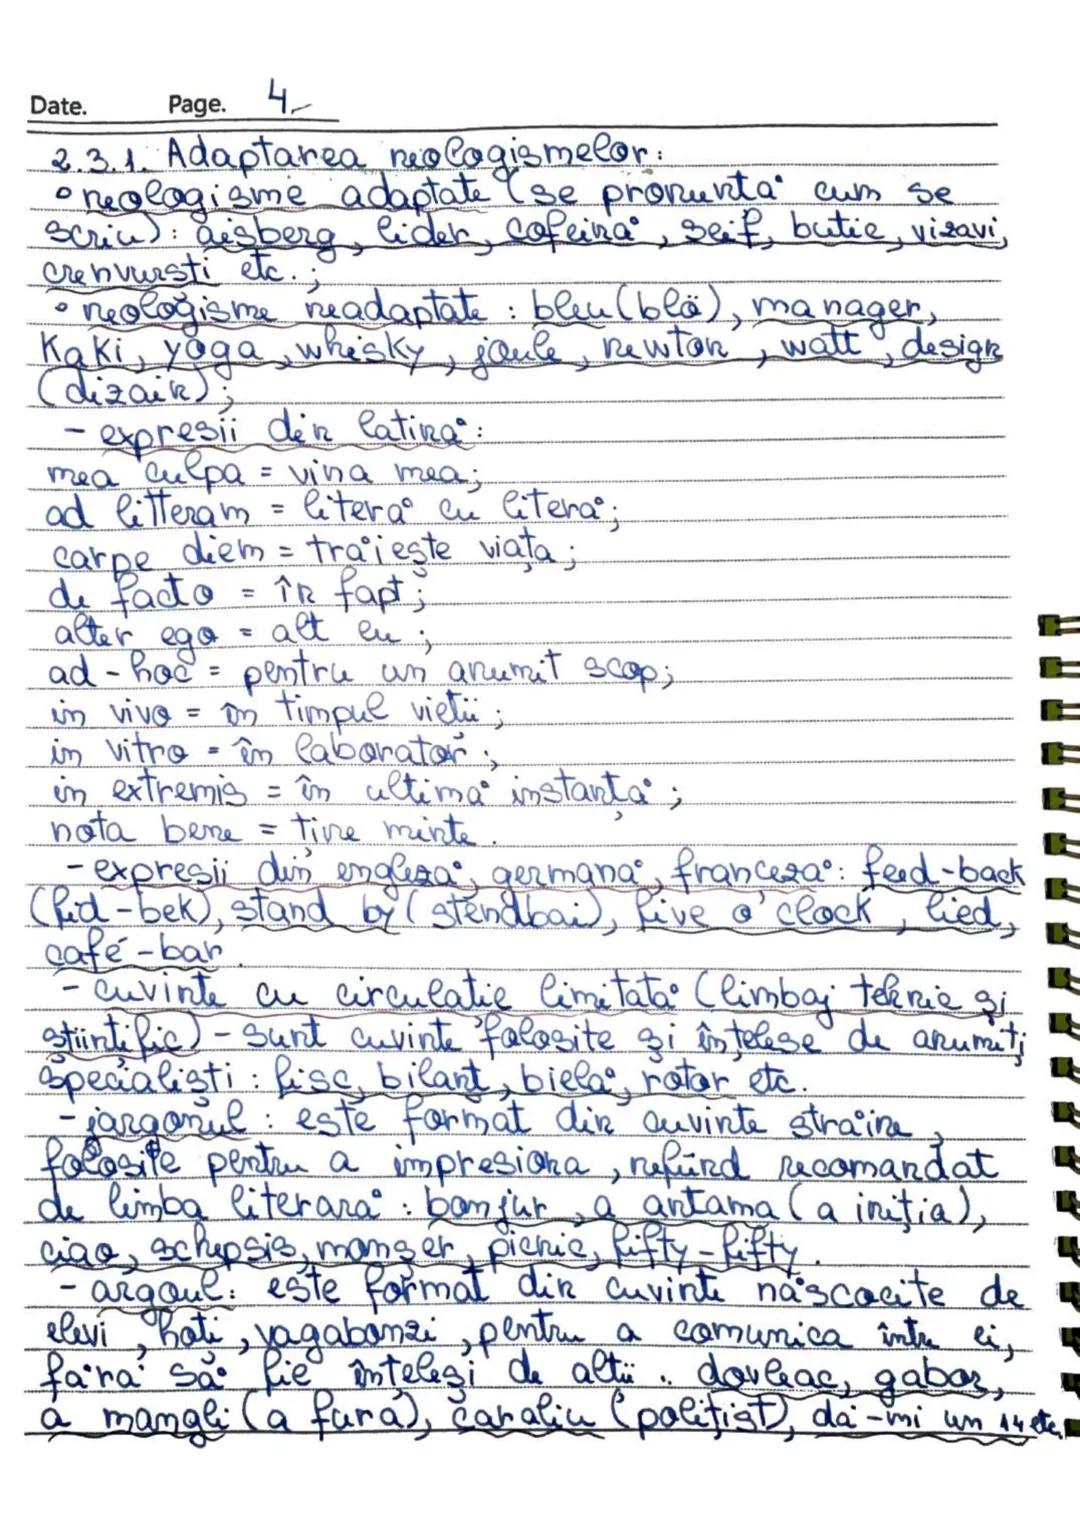 Date. Page. 4
2.3.1. Adaptarea neologismelor:
• neologisme adaptate (se pronunță cum se
scriu): aisberg, lider, cofeină, seif, butic, vizavi,
crenvurști etc.;
• neologisme neadaptate: bleu (blö), manager,
kaki, yoga, whisky, joule, newton, watt, design
(dizain);
- expresii din latină:
mea culpa = vina mea;
ad litteram = literă cu literă;
carpe diem = trăiește viața;
de facto = în fapt;
alter ego = alt eu;
ad-hoc = pentru un anumit scop;
in vivo = în timpul vieții;
in vitro = în laborator;
in extremis = în ultimă instanță;
nota bene = ține minte.
- expresii din engleză, germană, franceză: feed-back
(fid-bek), stand by (stendbai), five o'clock, lied,
café-bar.
- cuvinte cu circulație limitată (limbaj tehnic și
științific) - sunt cuvinte folosite și înțelese de anumiți
specialiști: fisc, bilanț, bielă, rotor etc.
- jargonul: este format din cuvinte străine,
folosite pentru a impresiona, nefiind recomandat
de limba literară: bonjur, a antama (a iniția),
ciao, schepsis, monșer, picnic, fifty-fifty.
- argoul: este format din cuvinte născocite de
elevi, hoți, vagabonzi, pentru a comunica între ei,
fără să fie înțeleși de alții: dovleac, gabor,
a mangli (a fura), caraliu (polițist), dă-mi un 14 etc.